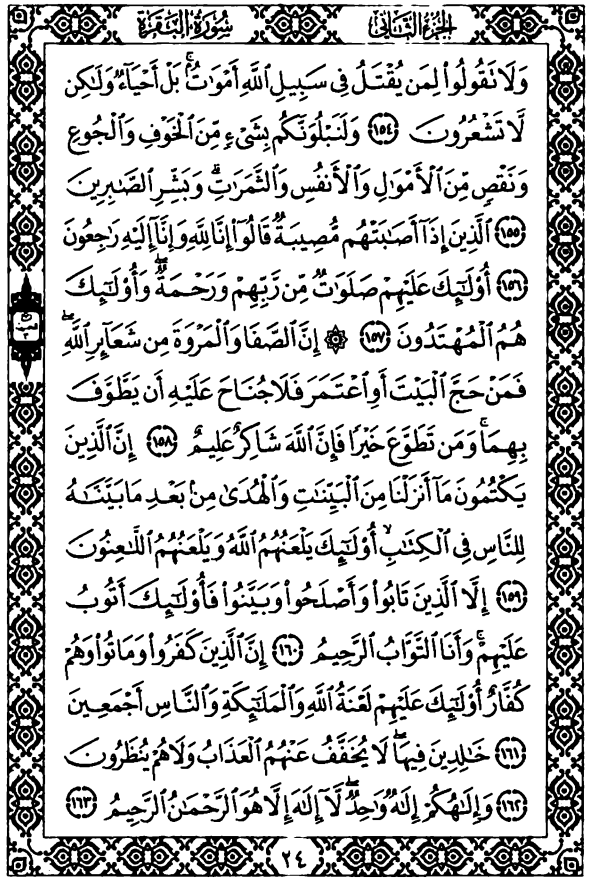 الجزء الثاني
سورة البقرة
وَلَا تَقُولُوا۟ لِمَن يُقْتَلُ فِى سَبِيلِ ٱللَّهِ أَمْوَٰتٌۢ ۚ بَلْ أَحْيَآءٌ وَلَـٰكِن
لَّا تَشْعُرُونَ ١٥٤ وَلَنَبْلُوَنَّكُم بِشَىْءٍ مِّنَ ٱلْخَوْفِ وَٱلْجُوعِ
وَنَقْصٍ مِّنَ ٱلْأَمْوَٰلِ وَٱلْأَنفُسِ وَٱلثَّمَرَٰتِ ۗ وَبَشِّرِ ٱلصَّـٰبِرِينَ
١٥٥ ٱلَّذِينَ إِذَآ أَصَـٰبَتْهُم مُّصِيبَةٌ قَالُوٓا۟ إِنَّا لِلَّهِ وَإِنَّآ إِلَيْهِ رَٰجِعُونَ
١٥٦ أُو۟لَـٰٓئِكَ عَلَيْهِمْ صَلَوَٰتٌ مِّن رَّبِّهِمْ وَرَحْمَةٌ ۖ وَأُو۟لَـٰٓئِكَ
هُمُ ٱلْمُهْتَدُونَ ١٥٧ ۞ إِنَّ ٱلصَّفَا وَٱلْمَرْوَةَ مِن شَعَآئِرِ ٱللَّهِ ۖ
فَمَنْ حَجَّ ٱلْبَيْتَ أَوِ ٱعْتَمَرَ فَلَا جُنَاحَ عَلَيْهِ أَن يَطَّوَّفَ
بِهِمَا ۚ وَمَن تَطَوَّعَ خَيْرًا فَإِنَّ ٱللَّهَ شَاكِرٌ عَلِيمٌ ١٥٨ إِنَّ ٱلَّذِينَ
يَكْتُمُونَ مَآ أَنزَلْنَا مِنَ ٱلْبَيِّنَـٰتِ وَٱلْهُدَىٰ مِنۢ بَعْدِ مَا بَيَّنَّـٰهُ
لِلنَّاسِ فِى ٱلْكِتَـٰبِ ۙ أُو۟لَـٰٓئِكَ يَلْعَنُهُمُ ٱللَّهُ وَيَلْعَنُهُمُ ٱللَّـٰعِنُونَ
١٥٩ إِلَّا ٱلَّذِينَ تَابُوا۟ وَأَصْلَحُوا۟ وَبَيَّنُوا۟ فَأُو۟لَـٰٓئِكَ أَتُوبُ
عَلَيْهِمْ ۚ وَأَنَا ٱلتَّوَّابُ ٱلرَّحِيمُ ١٦٠ إِنَّ ٱلَّذِينَ كَفَرُوا۟ وَمَاتُوا۟ وَهُمْ
كُفَّارٌ أُو۟لَـٰٓئِكَ عَلَيْهِمْ لَعْنَةُ ٱللَّهِ وَٱلْمَلَـٰٓئِكَةِ وَٱلنَّاسِ أَجْمَعِينَ
١٦١ خَـٰلِدِينَ فِيهَا ۖ لَا يُخَفَّفُ عَنْهُمُ ٱلْعَذَابُ وَلَا هُمْ يُنظَرُونَ
١٦٢ وَإِلَـٰهُكُمْ إِلَـٰهٌ وَٰحِدٌ ۖ لَّآ إِلَـٰهَ إِلَّا هُوَ ٱلرَّحْمَـٰنُ ٱلرَّحِيمُ ١٦٣
٢٤